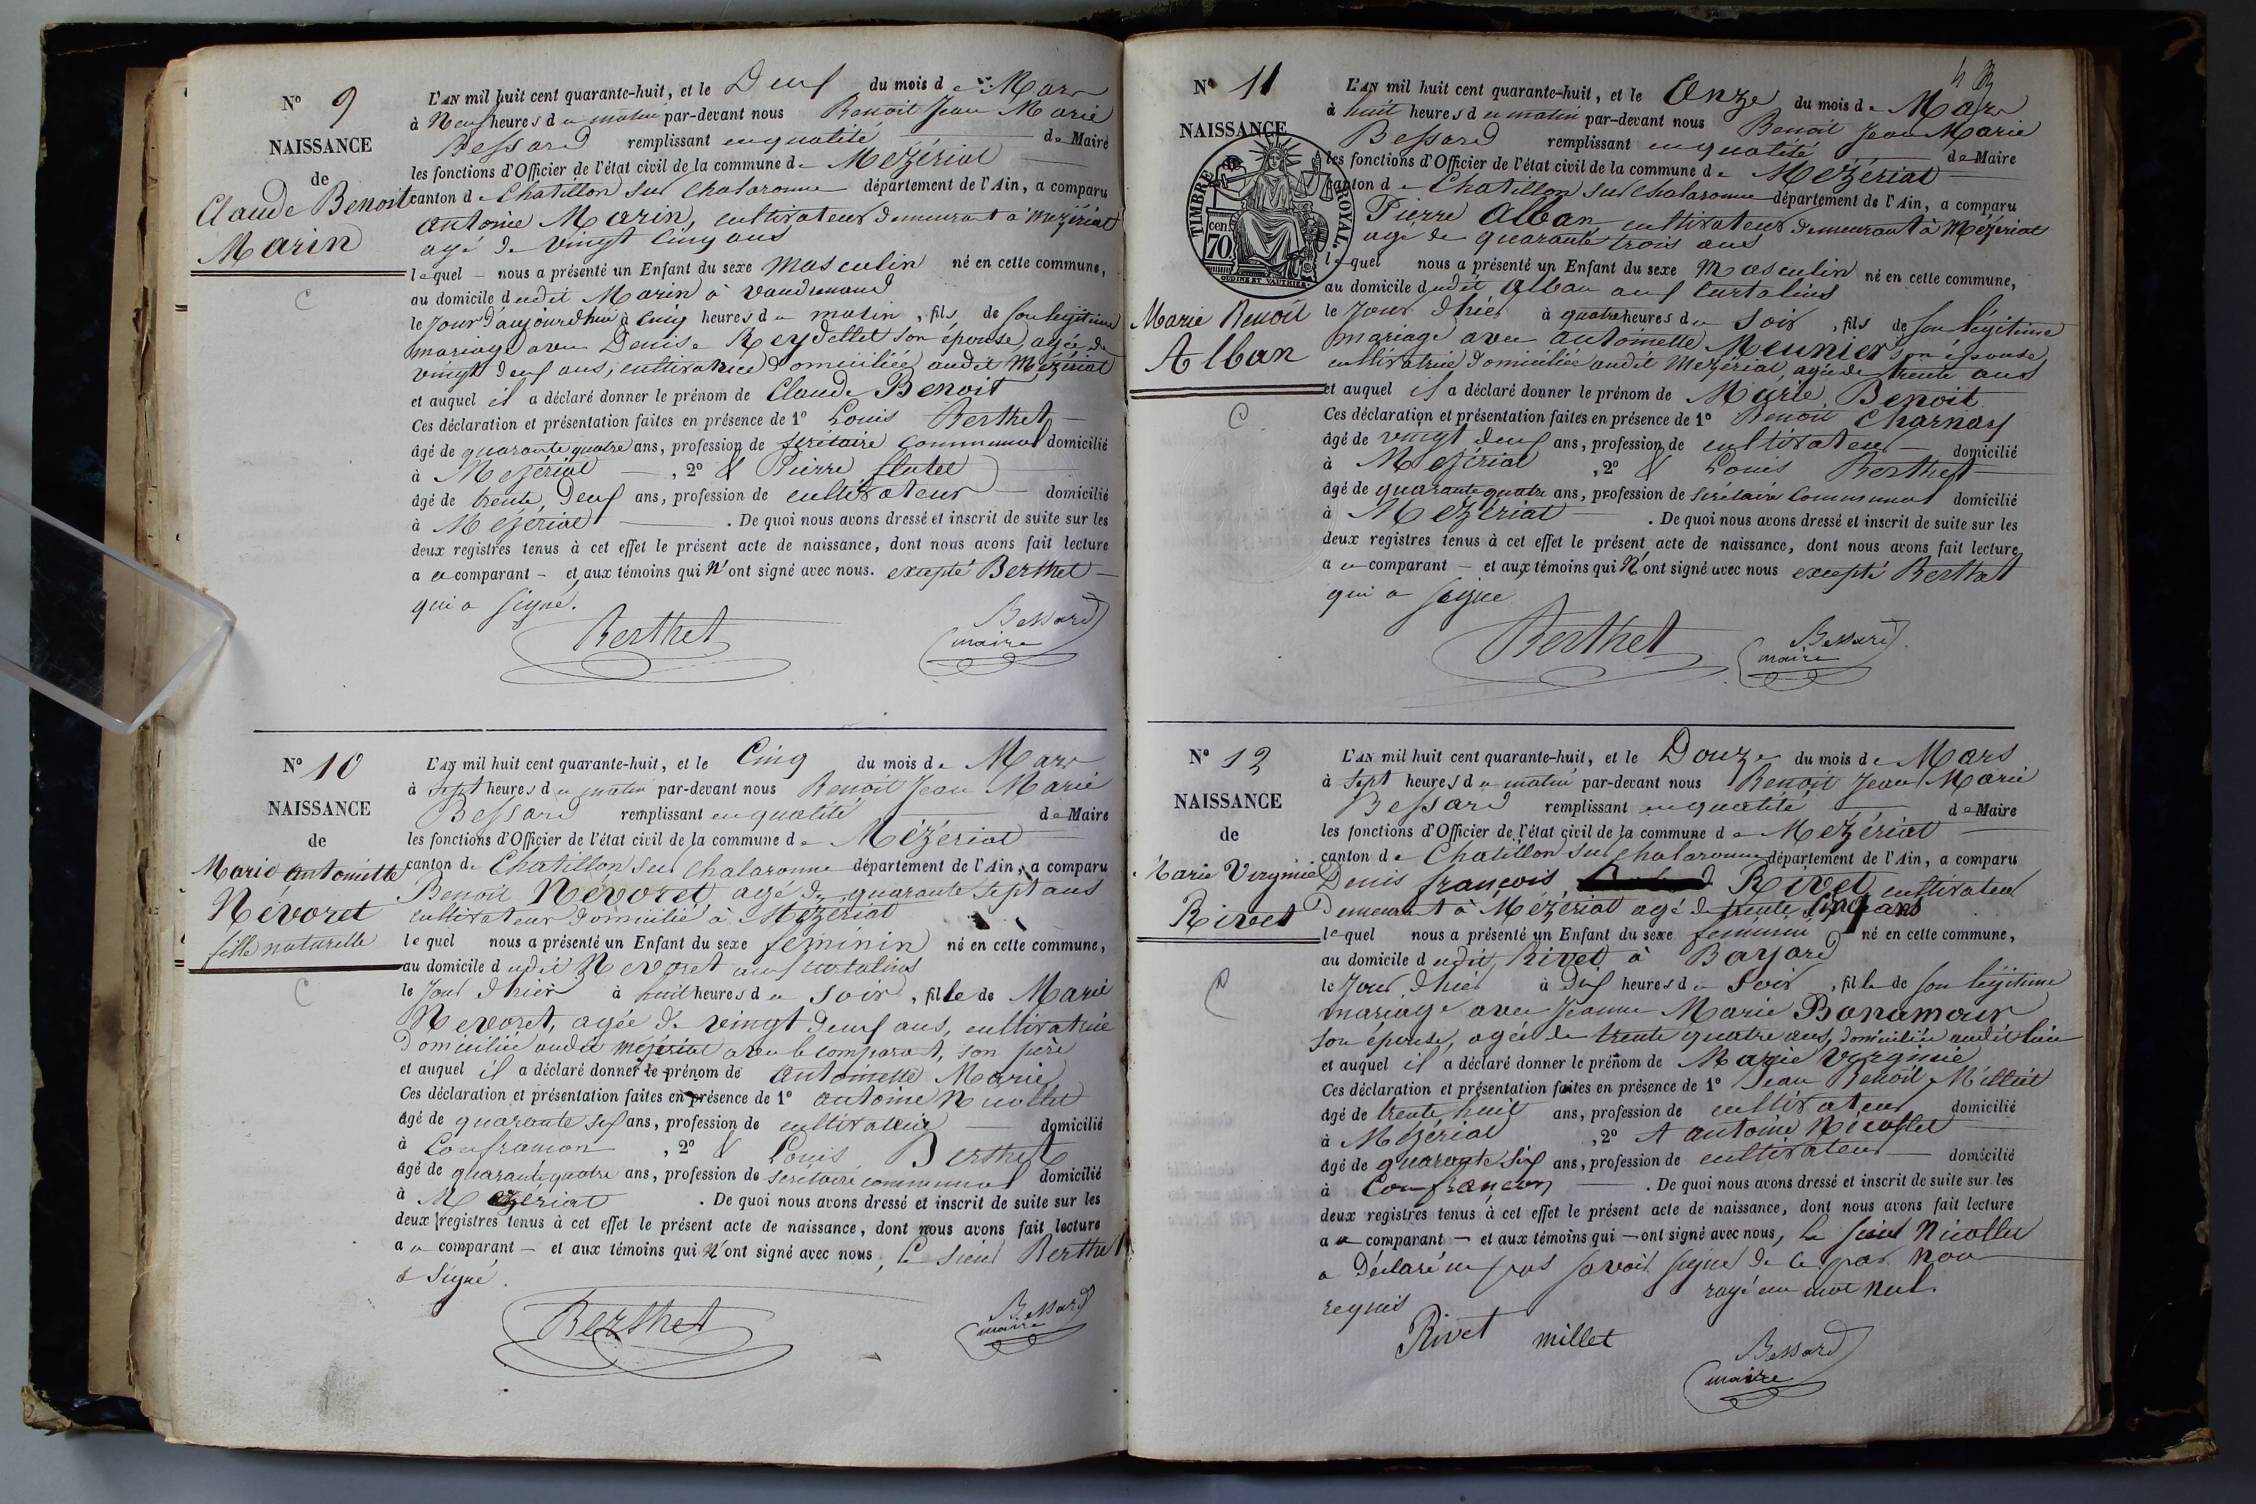 N° 9
NAISSANCE
de
Claude Benoit
Marin
L'AN mil huit cent quarante-huit, et le Deux du mois de Mars
à Neuf heures du matin par-devant nous Benoit Jean Marie
Bessard remplissant en qualité de Maire
les fonctions d'Officier de l'état civil de la commune de Mézériat
canton de Chatillon sur Chalaronne département de l'Ain, a comparu
antoine Marin, cultivateur demeurant à Mézériat
agé de vingt cinq ans
lequel nous a présenté un Enfant du sexe masculin né en cette commune,
au domicile dudit Marin à
le jour d'aujourdhui à cinq heures du matin, fils de son légitime
mariage avec Denise Reydellet son épouse, agée de
vingt deux ans, cultivatrice domiciliée audit Mézériat
et auquel il a déclaré donner le prénom de Claude Benoit
Ces déclaration et présentation faites en présence de 1° Louis Berthet
âgé de quarante quatre ans, profession de secrétaire communal domicilié
à Mezériat, 2° & Pierre
âgé de trente deux ans, profession de cultivateur domicilié
à Mézériat. De quoi nous avons dressé et inscrit de suite sur les
deux registres tenus à cet effet le présent acte de naissance, dont nous avons fait lecture
a ce comparant et aux témoins qui n'ont signé avec nous. excepté Berthet
qui a signé.
Berthet
Bessard
maire
N° 10
NAISSANCE
de
Marie antoinette
Névoret
fille naturelle
L'AN mil huit cent quarante-huit, et le Cinq du mois de Mars
à sept heures du matin par-devant nous Benoit Jean Marie
Bessard remplissant en qualité de Maire
les fonctions d'Officier de l'état civil de la commune de Mézériat
canton de Chatillon sur Chalaronne département de l'Ain, a comparu
Benoit Névoret, agé de quarante sept ans
cultivateur domicilié à Mézériat
lequel nous a présenté un Enfant du sexe féminin né en cette commune,
au domicile dudit Nevoret aux curtalins
le jour d'hier à huit heures du soir, fille de Marie
Nevoret, agée de vingt deux ans, cultivatrice
domiciliée audit mézériat avec le comparant, son père
et auquel il a déclaré donner le prénom de antoinette Marie
Ces déclaration et présentation faites en présence de 1° antoine Nicollet
âgé de quarante six ans, profession de cultivateur domicilié
à Confrançon, 2° & Louis Berthet
âgé de quarante quatre ans, profession de secrétaire communal domicilié
à Mézériat. De quoi nous avons dressé et inscrit de suite sur les
deux registres tenus à cet effet le présent acte de naissance, dont nous avons fait lecture
a ce comparant et aux témoins qui n'ont signé avec nous, le sieur Berthet
a signé.
Berthet
Bessard
maire
N° 11
NAISSANCE
TIMBRE ROYAL.
70 cen.
OUDINÉ ET VAUTHIER.
Marie Benoit
Alban
L'AN mil huit cent quarante-huit, et le Onze du mois de Mars
à huit heures du matin par-devant nous Benoit Jean Marie
Bessard remplissant en qualité de Maire
les fonctions d'Officier de l'état civil de la commune de Mézériat
canton de Chatillon sur Chalaronne département de l'Ain, a comparu
Pierre Alban, cultivateur demeurant à Mézériat
agé de quarante trois ans
lequel nous a présenté un Enfant du sexe masculin né en cette commune,
au domicile dudit Alban aux curtalins
le jour d'hier à quatre heures du soir, fils de son légitime
mariage avec antoinette Meunier son épouse,
cultivatrice domiciliée audit Mézériat, agée de trente ans
et auquel il a déclaré donner le prénom de Marie Benoit
Ces déclaration et présentation faites en présence de 1° Benoit Charnay
âgé de vingt deux ans, profession de cultivateur domicilié
à Mézériat, 2° & Louis Berthet
âgé de quarante quatre ans, profession de secrétaire communal domicilié
à Mézériat. De quoi nous avons dressé et inscrit de suite sur les
deux registres tenus à cet effet le présent acte de naissance, dont nous avons fait lecture
a ce comparant et aux témoins qui n'ont signé avec nous excepté Berthet
qui a signé
Berthet
Bessard
maire
N° 12
NAISSANCE
de
Marie Virginie
Rivet
L'AN mil huit cent quarante-huit, et le Douze du mois de Mars
à sept heures du matin par-devant nous Benoit Jean Marie
Bessard remplissant en qualité de Maire
les fonctions d'Officier de l'état civil de la commune de Mézériat
canton de Chatillon sur Chalaronne département de l'Ain, a comparu
Denis françois Rivet cultivateur
Demeurant à Mézériat agé de trente cinq ans
lequel nous a présenté un Enfant du sexe féminin né en cette commune,
au domicile dudit Rivet à Bayard
le jour d'hier à Dix heures du soir, fille de son légitime
mariage avec Jeanne Marie Bonamour
son épouse, agée de trente quatre ans, domiciliée audit lieu
et auquel il a déclaré donner le prénom de Marie Virginie
Ces déclaration et présentation faites en présence de 1° Jean Benoit Millet
âgé de trente huit ans, profession de cultivateur domicilié
à Mézériat, 2° & antoine Nicollet
âgé de quarante six ans, profession de cultivateur domicilié
à Confrançon. De quoi nous avons dressé et inscrit de suite sur les
deux registres tenus à cet effet le présent acte de naissance, dont nous avons fait lecture
a ce comparant et aux témoins qui ont signé avec nous, le sieur Nicollet
a Déclaré ne pas savoir signer de ce par nous
requis rayé un mot nul.
Rivet millet
Bessard
maire